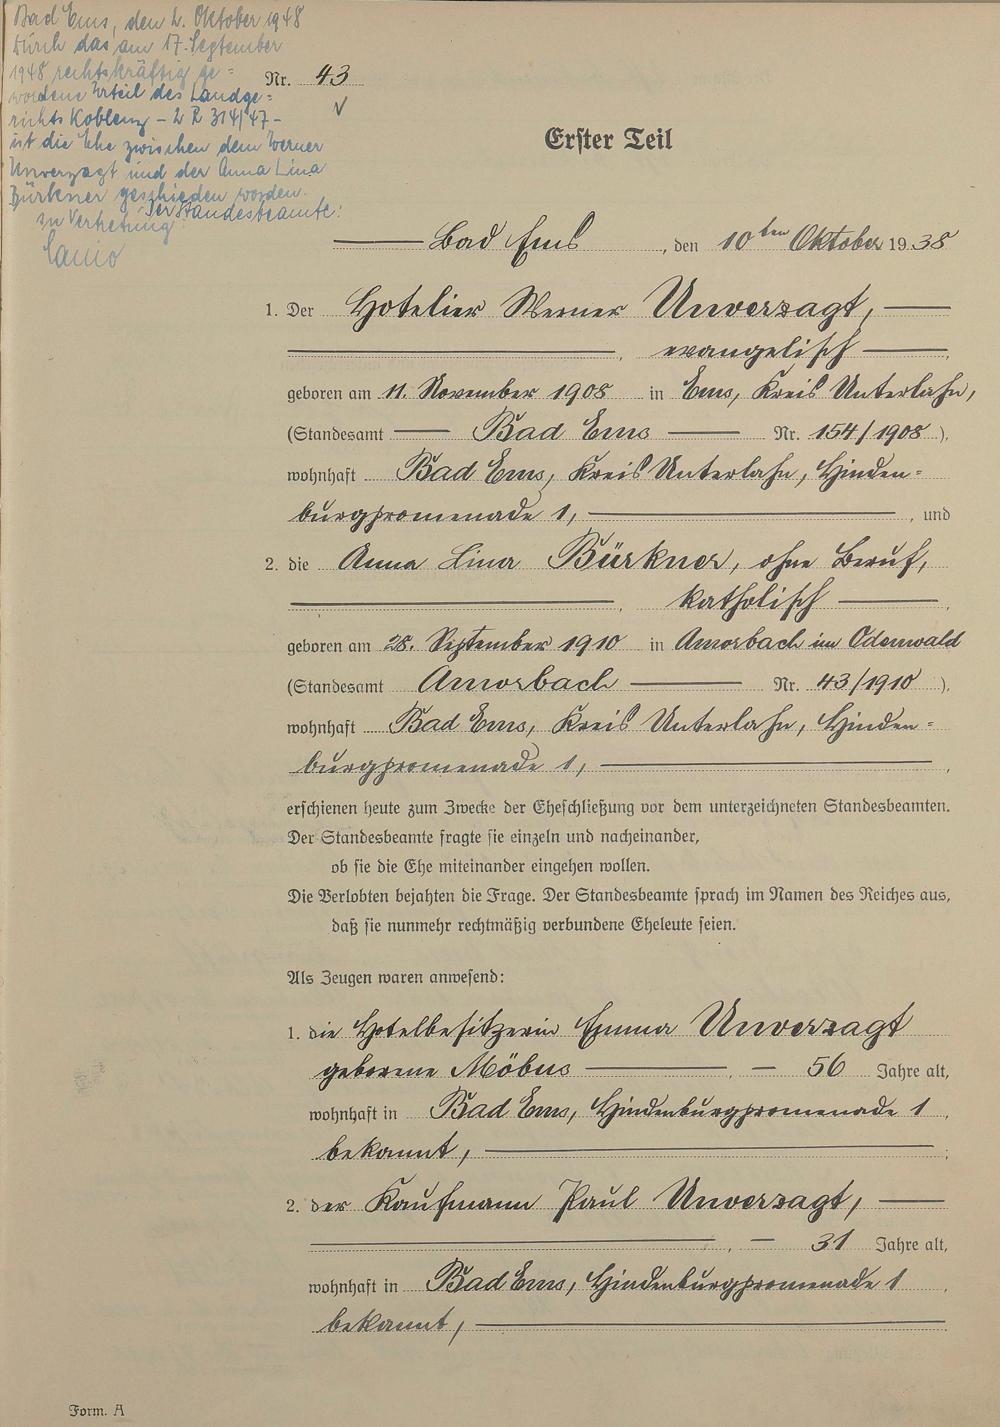 Bad Ems, den 2. Oktober 1948
Durch das am 17. September
1948 rechtskräftig ge=
wordene Urteil des Landge=
richts Koblenz – 2 R 314/47 –
ist die Ehe zwischen dem Werner
Unverzagt und der Anna Lina
Bürkner geschieden worden.
Der Standesbeamte:
In Vertretung:
Nr. 43
Erster Teil
Bad Ems, den 10ten Oktober 1938
1. Der Hotelier Werner Unverzagt,
, evangelisch ,
geboren am 11. November 1908 in Ems, Kreis Unterlahn,
(Standesamt Bad Ems Nr. 154/1908),
wohnhaft Bad Ems, Kreis Unterlahn, Hinden=
burgpromenade 1, , und
2. die Anna Lina Bürkner, ohne Beruf,
, katholisch ,
geboren am 28. September 1910 in Amorbach im Odenwald
(Standesamt Amorbach Nr. 43/1910),
wohnhaft Bad Ems, Kreis Unterlahn, Hinden=
burgpromenade 1, ,
erschienen heute zum Zwecke der Eheschließung vor dem unterzeichneten Standesbeamten.
Der Standesbeamte fragte sie einzeln und nacheinander,
ob sie die Ehe miteinander eingehen wollen.
Die Verlobten bejahten die Frage. Der Standesbeamte sprach im Namen des Reiches aus,
daß sie nunmehr rechtmäßig verbundene Eheleute seien.
Als Zeugen waren anwesend:
1. die Hotelbesitzerin Emma Unverzagt
geborene Möbus , – 56 Jahre alt,
wohnhaft in Bad Ems, Hindenburgpromenade 1 ,
bekannt, ;
2. der Kaufmann Paul Unverzagt,
, – 31 Jahre alt,
wohnhaft in Bad Ems, Hindenburgpromenade 1 ,
bekannt,
Form. A